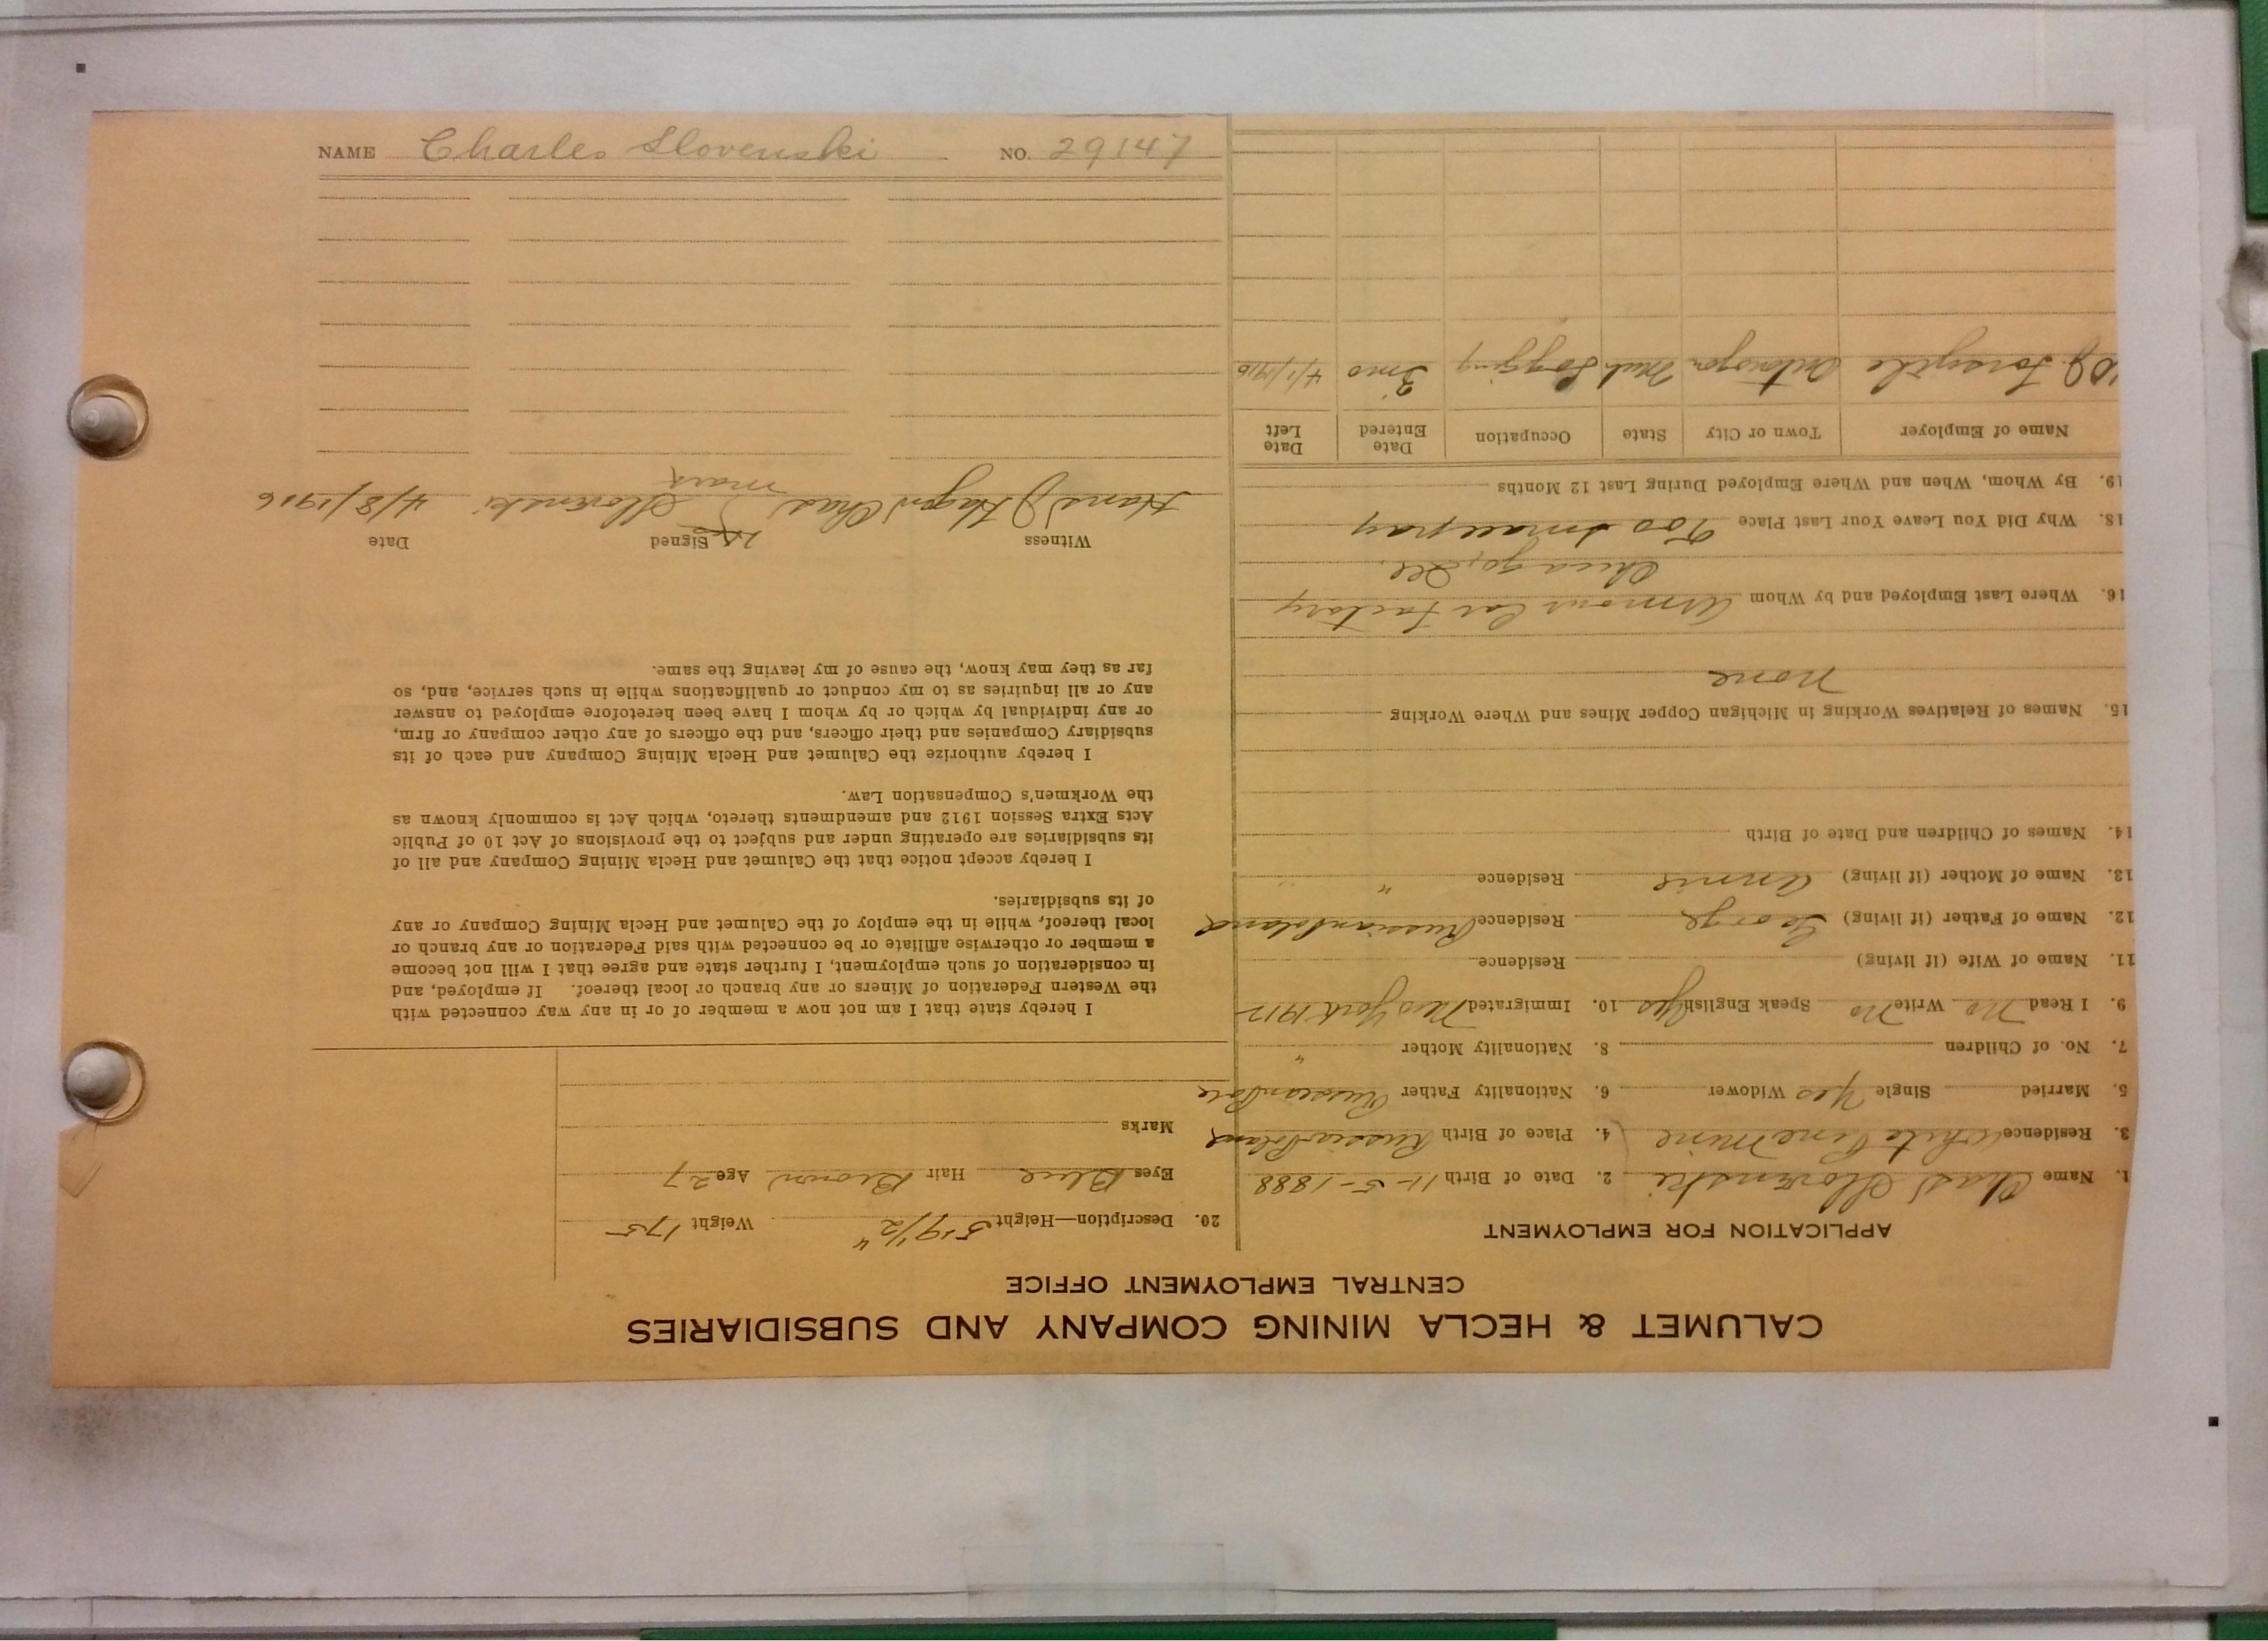 CALUMET & HECLA MINING COMPANY AND SUBSIDIARIES
CENTRAL EMPLOYMENT OFFICE
APPLICATION FOR EMPLOYMENT
1. Name Chas Slovenski 2. Date of Birth 11-5-1888
3. Residence White Pine Mine 4. Place of Birth Russia Poland
5. Married Single Yes Widower 6. Nationality Father Russian Pole
7. No. of Children 8. Nationality Mother "
9. I Read No Write No Speak English Yes 10. Immigrated New York 1912
11. Name of Wife (if living) Residence
12. Name of Father (if living) George Residence Russian Poland
13. Name of Mother (if living) Annie Residence " "
14. Names of Children and Date of Birth
15. Names of Relatives Working in Michigan Copper Mines and Where Working
None
16. Where Last Employed and by Whom Armour Car Factory
Chicago, Ill.
18. Why Did You Leave Your Last Place Too small pay
19. By Whom, When and Where Employed During Last 12 Months
Name of Employer Town or City State Occupation Date Entered Date Left
J. Forsythe Ontonagon Mich Logging 3 mo 4/1/1916
20. Description—Height 5'9 1/2" Weight 175
Eyes Blue Hair Brown Age 27
Marks
I hereby state that I am not now a member of or in any way connected with
the Western Federation of Miners or any branch or local thereof. If employed, and
in consideration of such employment, I further state and agree that I will not become
a member or otherwise affiliate or be connected with said Federation or any branch or
local thereof, while in the employ of the Calumet and Hecla Mining Company or any
of its subsidiaries.
I hereby accept notice that the Calumet and Hecla Mining Company and all of
its subsidiaries are operating under and subject to the provisions of Act 10 of Public
Acts Extra Session 1912 and amendments thereto, which Act is commonly known as
the Workmen's Compensation Law.
I hereby authorize the Calumet and Hecla Mining Company and each of its
subsidiary Companies and their officers, and the officers of any other company or firm,
or any individual by which or by whom I have been heretofore employed to answer
any or all inquiries as to my conduct or qualifications while in such service, and, so
far as they may know, the cause of my leaving the same.
Witness Signed Date
Hans J Hagen Chas his x mark Slovenski 4/8/1916
NAME Charles Slovenski NO. 29147